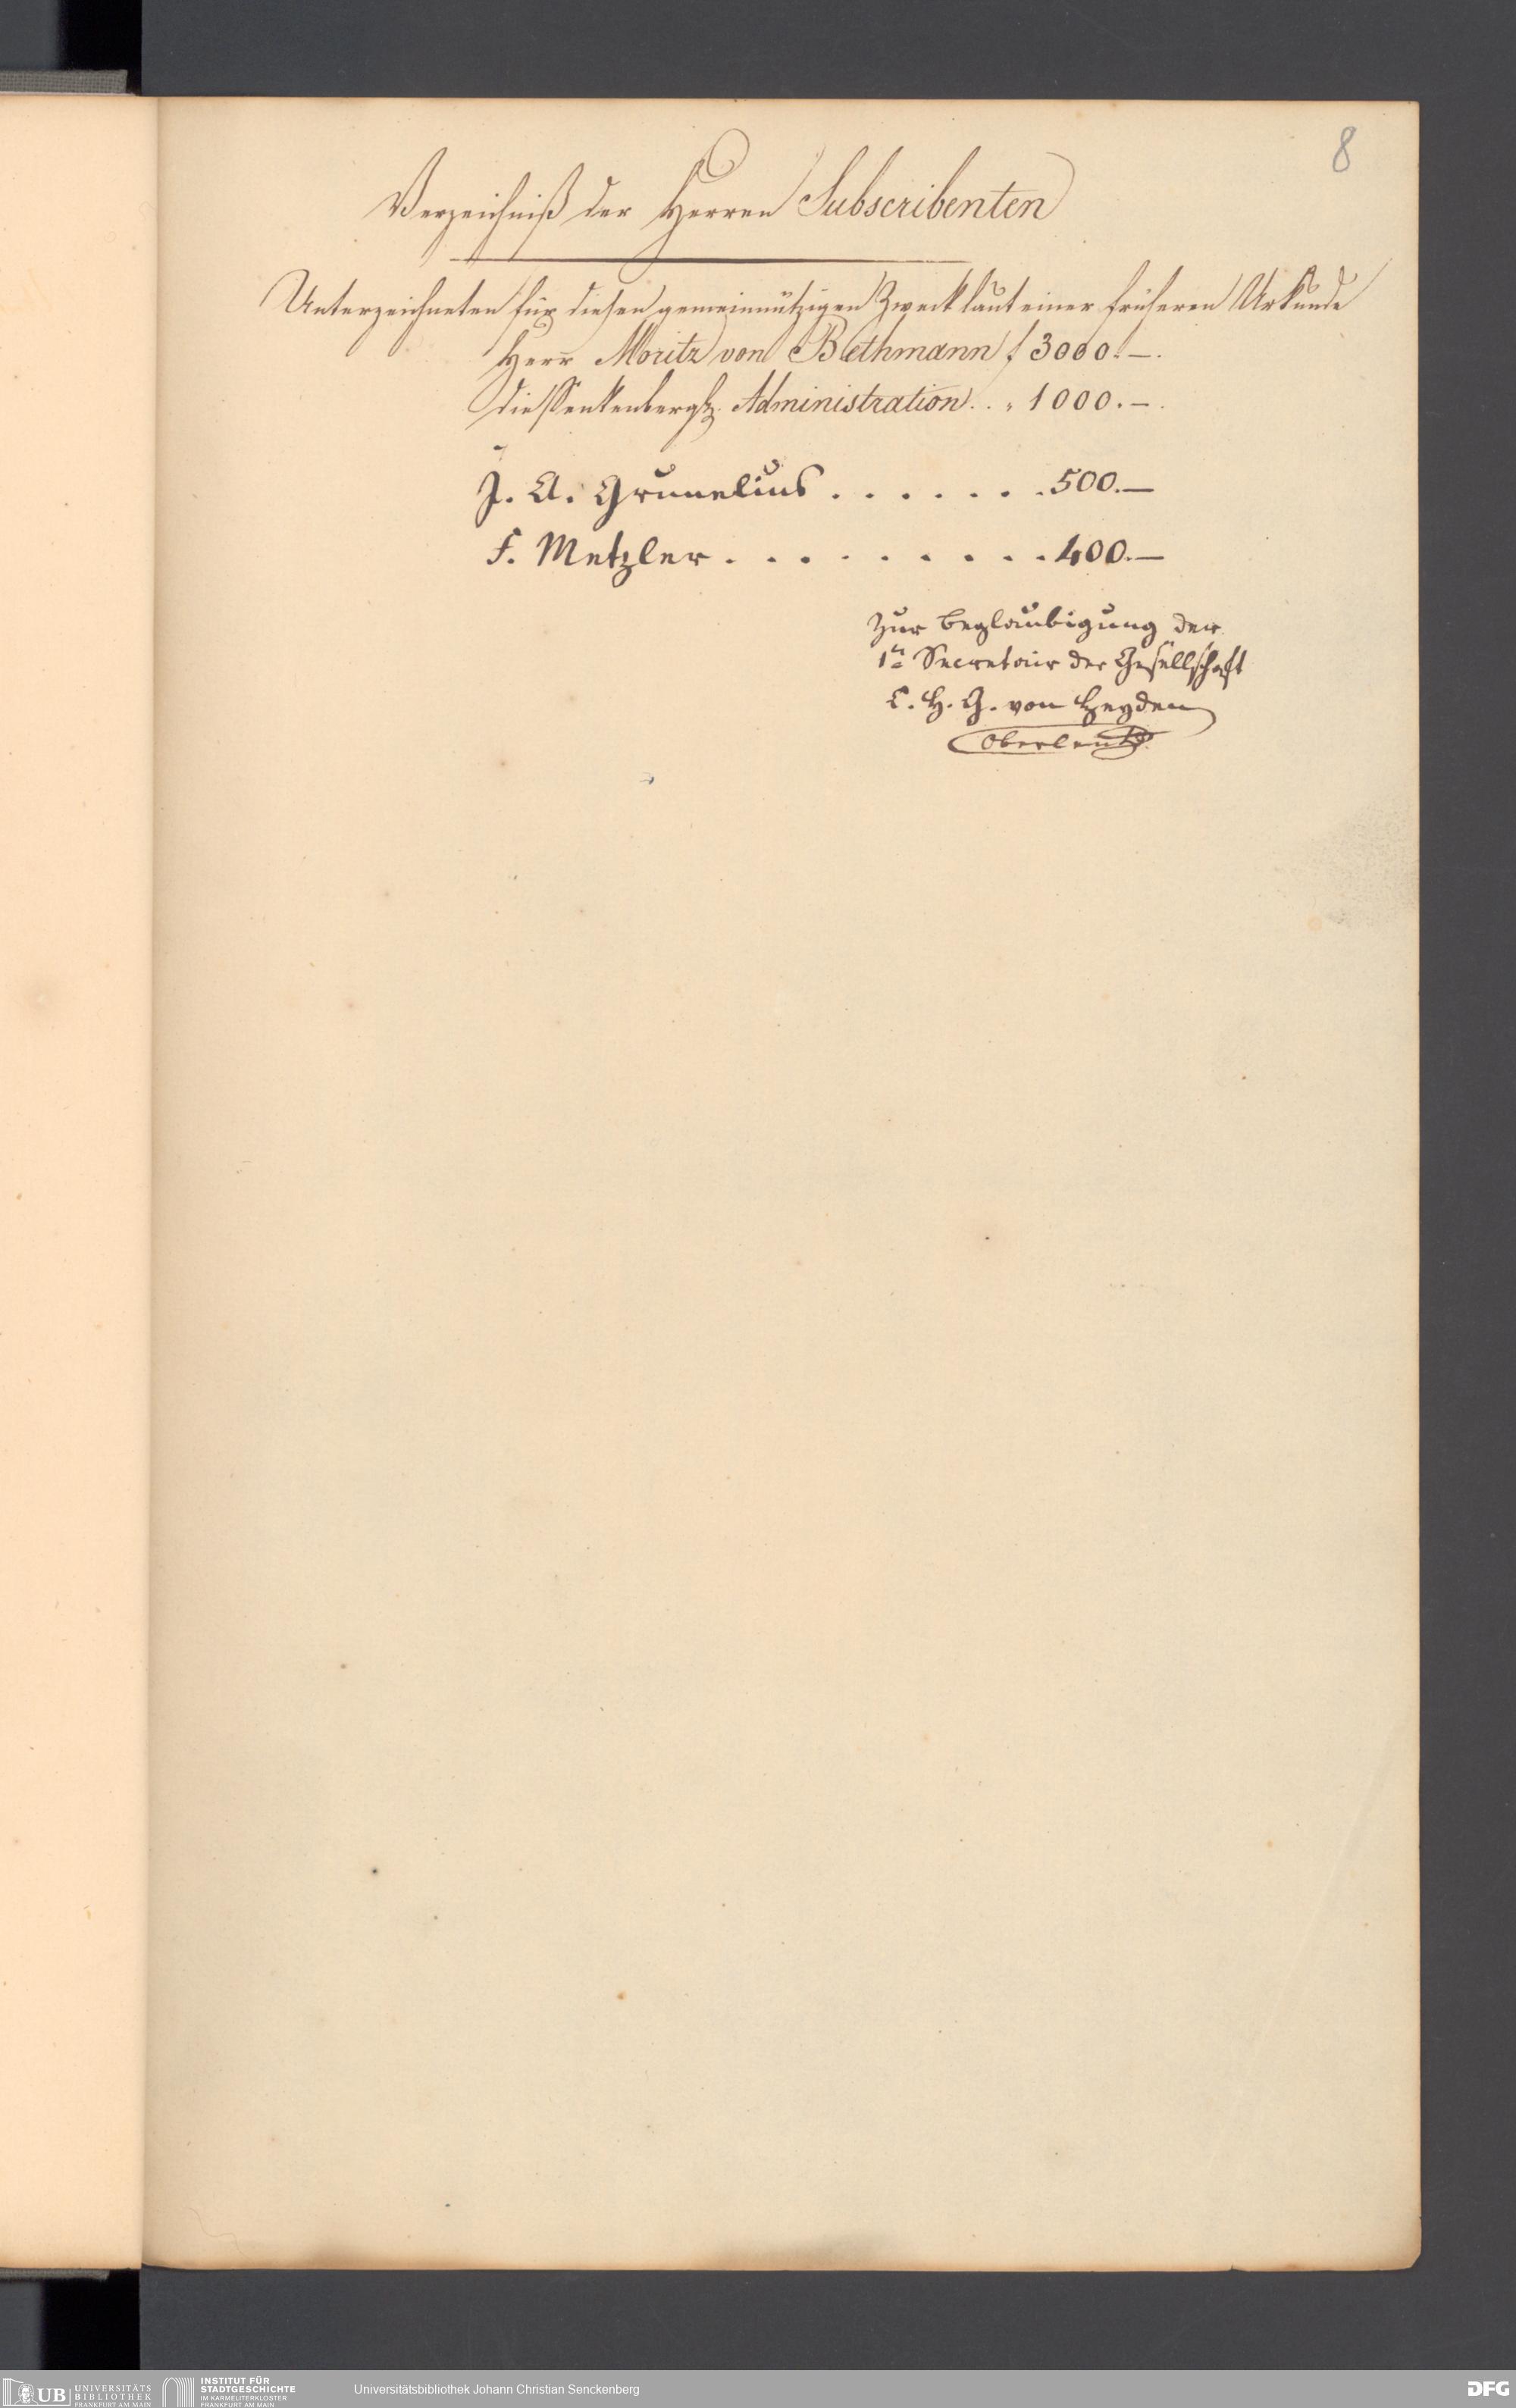 8
Verzeichniß der Herren Subscribenten
Unterzeichneten für diesen gemeinnützigen Zweck laut einer früheren Urkunde
Herr Moritz von Bethmann f 3000.—.
die Senkenbergs. Administration . . „ 1000.—.
J. A. Grunelius . . . . . . . 500.—
F. Metzler . . . . . . . . . 400.—
Zur Beglaubigung der
1te Secretair der Gesellschaft
C. H. G. von Heyden
Oberleut
UB UNIVERSITÄTS
BIBLIOTHEK
FRANKFURT AM MAIN
INSTITUT FÜR
STADTGESCHICHTE
IM KARMELITERKLOSTER
FRANKFURT AM MAIN
Universitätsbibliothek Johann Christian Senckenberg
DFG